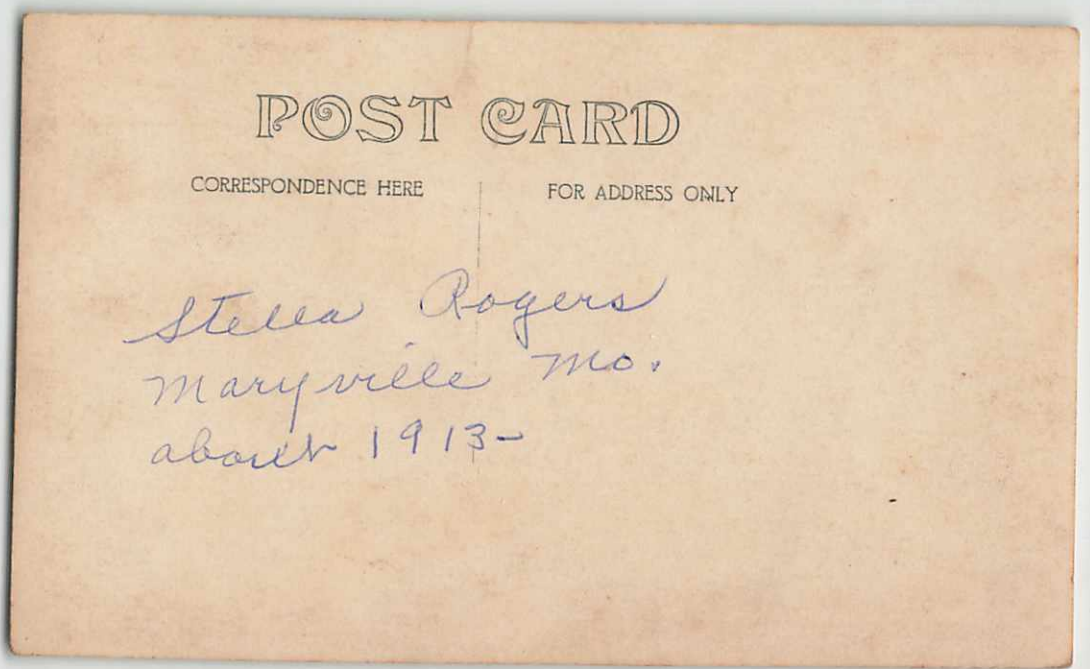 POST CARD
CORRESPONDENCE HERE
FOR ADDRESS ONLY
Stella Rogers
Maryville Mo.
about 1913-